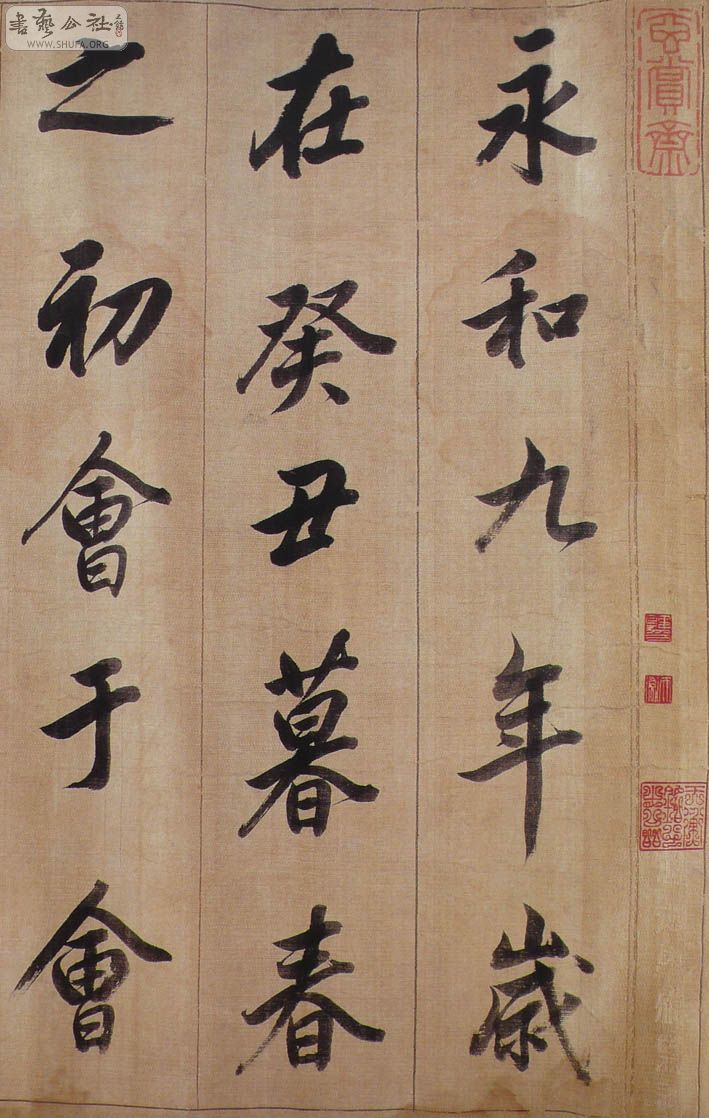 永和九年歲
在癸丑暮春
之初會于會
玄賞齋
書藝公社
WWW.SHUFA.ORG